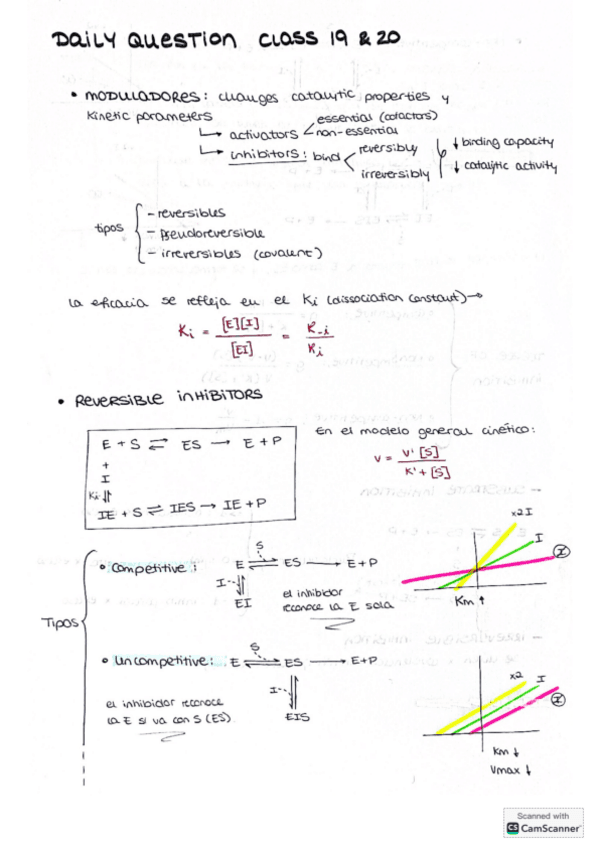 DAILY QUESTION CLASS 19 & 20
• MODULADORES: changes catalytic properties y
kinetic parameters
↳ activators < essential (cofactors)
non-essential
↳ inhibitors: bind < reversibly
irreversibly
↓ binding capacity
↓ catalytic activity
tipos
- reversibles
- pseudoreversible
- irreversibles (covalent)
La eficacia se refleja en el Ki (dissociation constant) →
Ki = [E][I] / [EI] = K-i / Ki
• REVERSIBLE INHIBITORS
E + S ⇌ ES → E + P
+
I
Ki ⇅
IE + S ⇌ IES → IE + P
En el modelo general cinético:
V = V' [S] / K' + [S]
Tipos
• Competitive:
E ⇌ ES → E + P
S
I
EI
el inhibidor
reconoce la E sola
x2 I
I
I
Km ↑
• Uncompetitive:
E ⇌ ES → E+P
S
I
EIS
el inhibidor reconoce
la E si va con S (ES)
x2
I
I
Km ↓
Vmax ↓
Scanned with
CS CamScanner